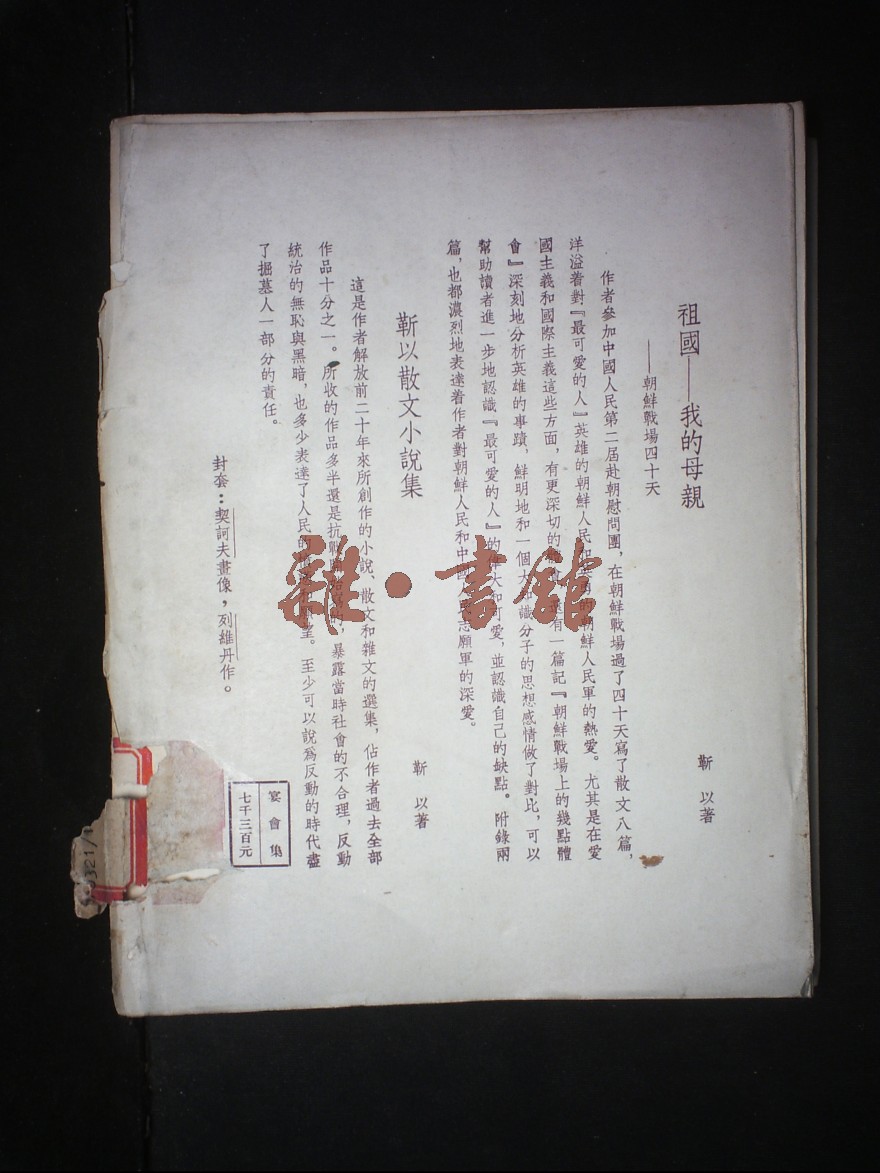 祖國——我的母親
——朝鮮戰場四十天
靳 以著
作者參加中國人民第二屆赴朝慰問團，在朝鮮戰場過了四十天寫了散文八篇，
洋溢着對『最可愛的人』英雄的朝鮮人民和 的朝鮮人民軍的熱愛。尤其是在愛
國主義和國際主義這些方面，有更深切的 有一篇記『朝鮮戰場上的幾點體
會』深刻地分析英雄的事蹟，鮮明地和一個 識分子的思想感情做了對比，可以
幫助讀者進一步地認識『最可愛的人』的偉大和可愛，並認識自己的缺點。附錄兩
篇，也都濃烈地表達着作者對朝鮮人民和中國 志願軍的深愛。
靳以散文小說集
靳 以著
這是作者解放前二十年來所創作的小說、散文和雜文的選集，佔作者過去全部
作品十分之一。所收的作品多半還是抗戰 ，暴露當時社會的不合理，反動
統治的無恥與黑暗，也多少表達了人民的 望。至少可以說爲反動的時代盡
了掘墓人一部分的責任。
封套：契訶夫畫像，列維丹作。
宴會集
七千三百元
雜·書館
321/